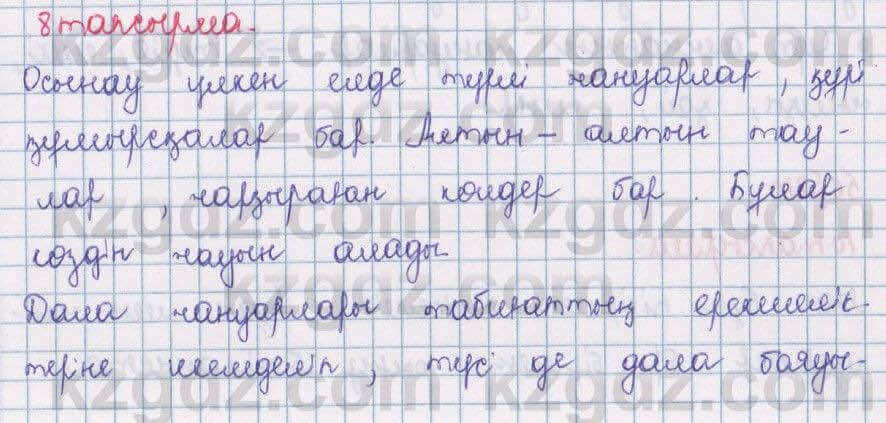 8 тапсырма.
Осынау үлкен елде түрлі жануарлар, түрлі
жар. Алтын - алтын тау-
лар, жарқыраған көлдер бар. Бұлар
көздің жауын алады
Дала жануарлары табиғаттың ерекшелік-
теріне шемделіп, түсі де дала бояуы-